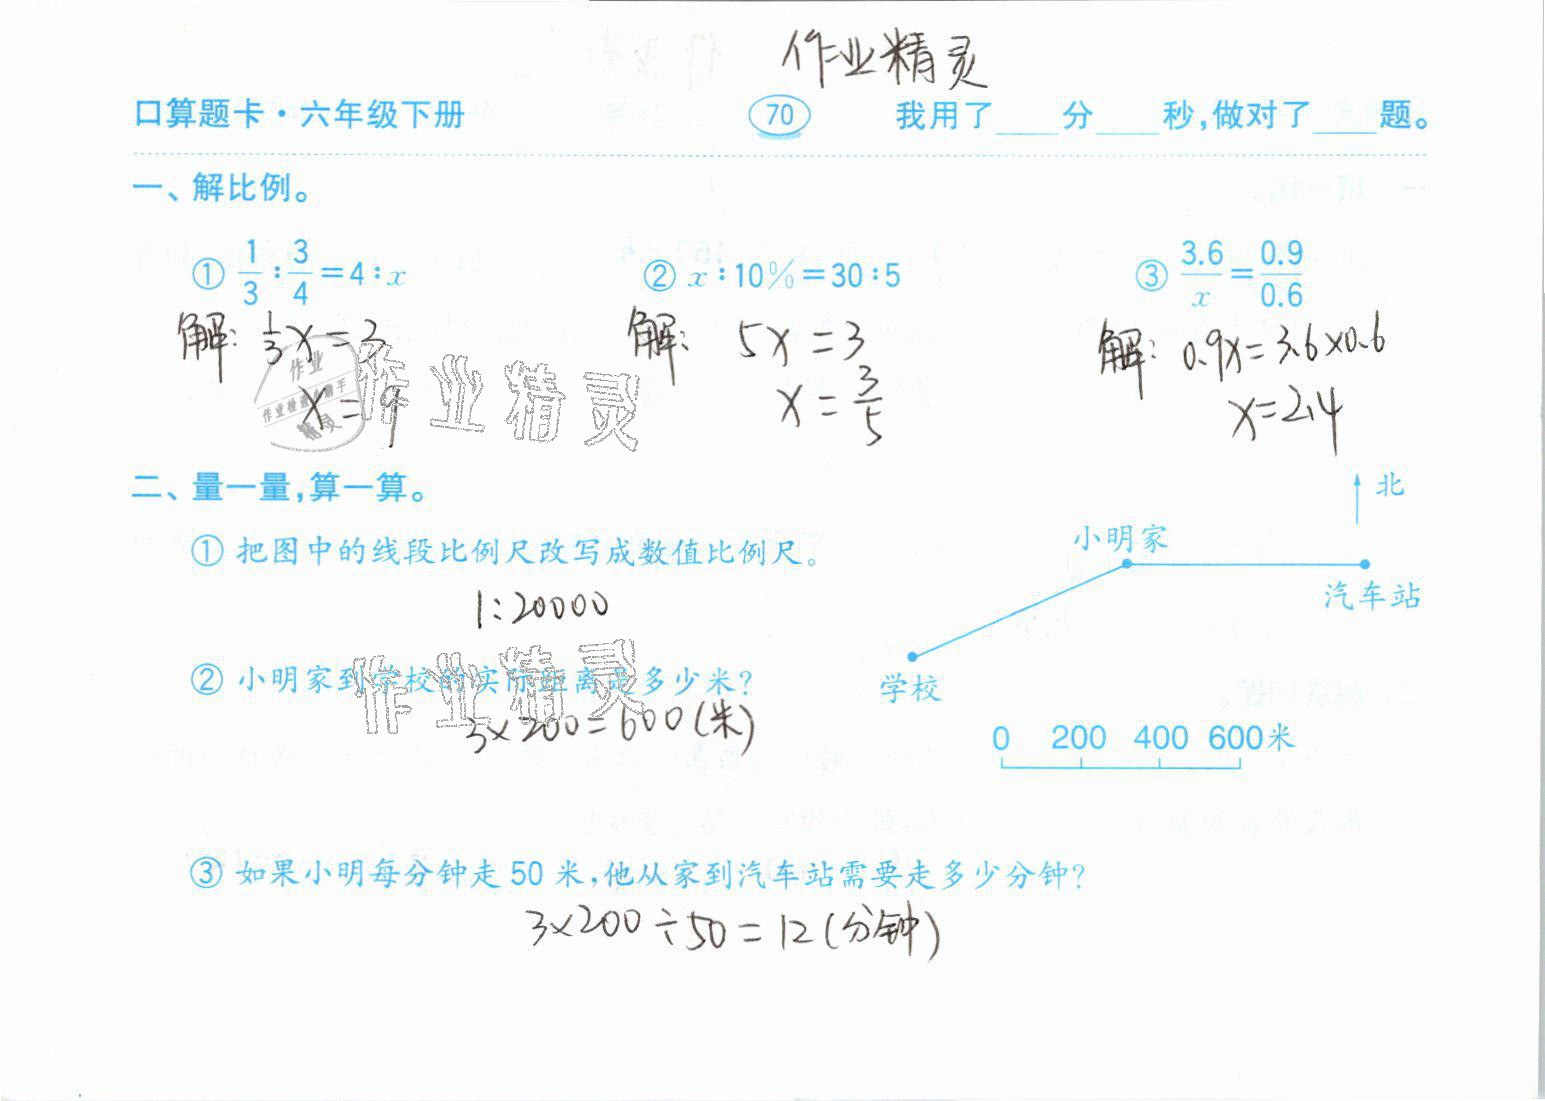 作业精灵
口算题卡·六年级下册 70 我用了____分____秒,做对了____题。
一、解比例。
① 1/3 : 3/4 = 4 : x ② x : 10% = 30 : 5 ③ 3.6/x = 0.9/0.6
解: 1/3 x = 3 解: 5x = 3 解: 0.9x = 3.6×0.6
x = 9 x = 3/5 x = 2.4
作业
作业检查小帮手
精灵
作业精灵
二、量一量,算一算。
① 把图中的线段比例尺改写成数值比例尺。
1:20000
② 小明家到学校的实际距离是多少米?
作业精灵
3×200=600(米)
北
小明家
汽车站
学校
0 200 400 600米
③ 如果小明每分钟走 50 米,他从家到汽车站需要走多少分钟?
3×200÷50=12(分钟)